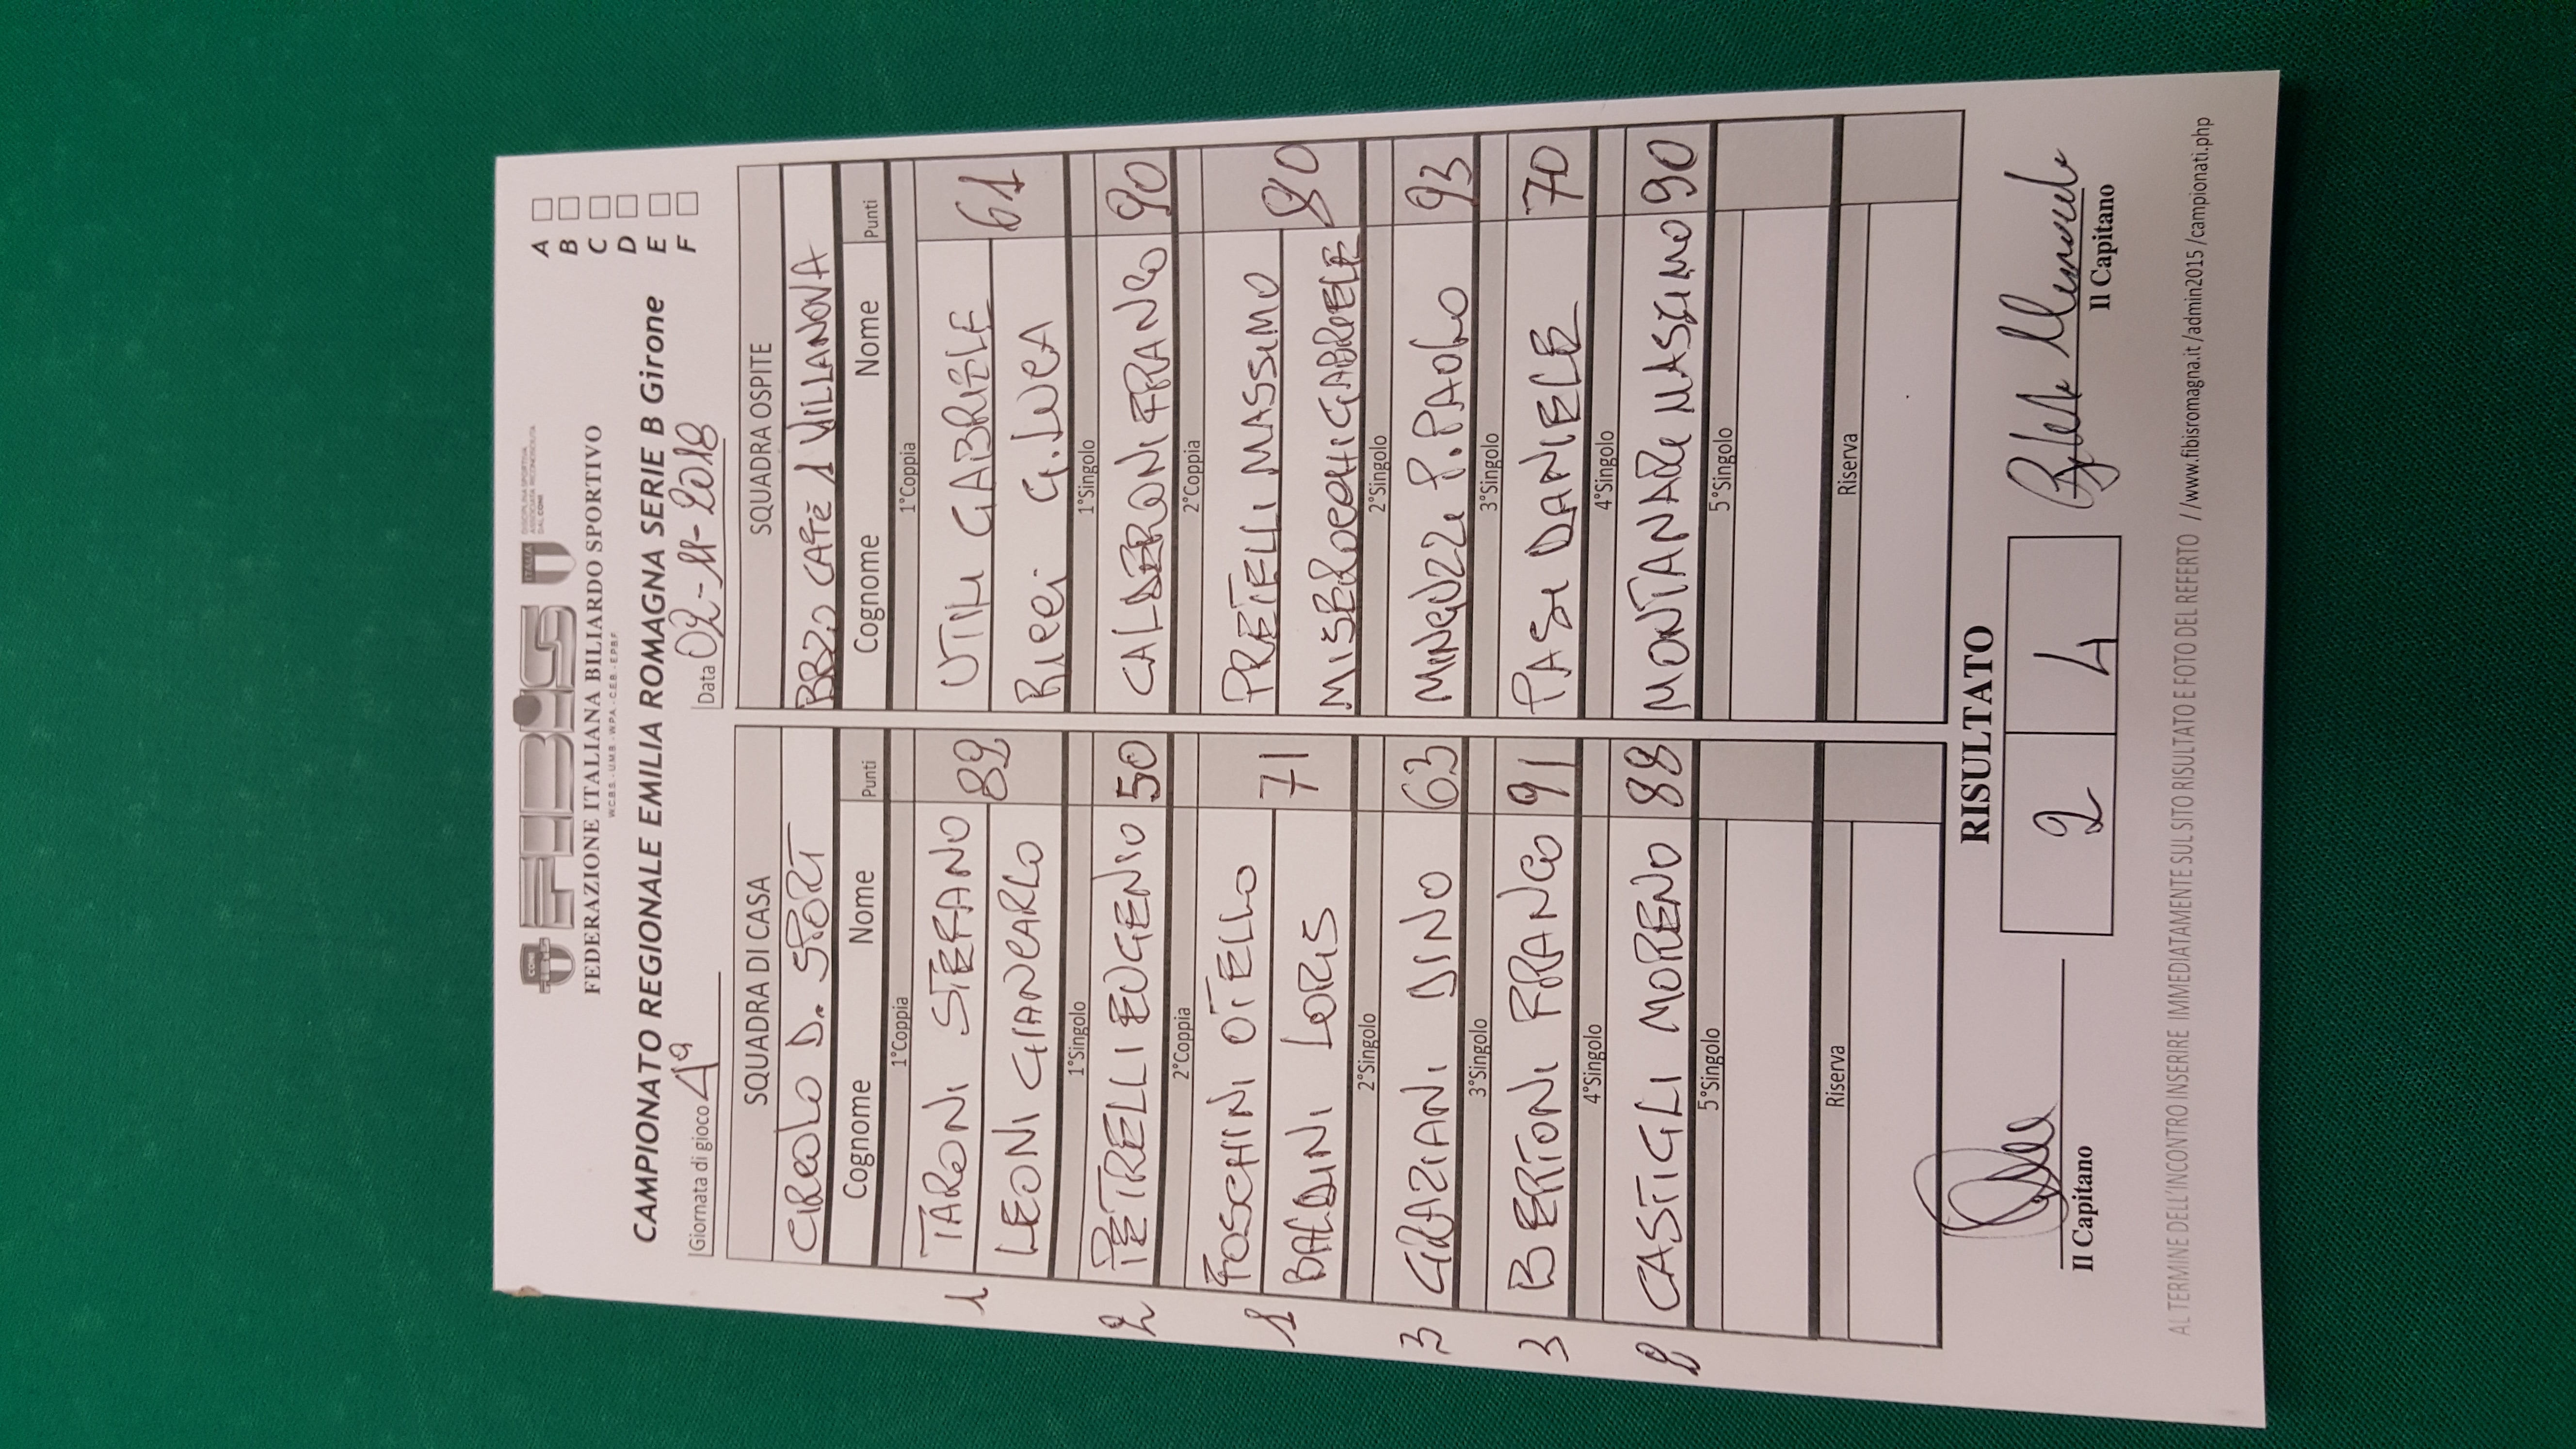 CONI
FIBIS
ITALIA
DISCIPLINA SPORTIVA
ASSOCIATA RICONOSCIUTA
DAL CONI
FEDERAZIONE ITALIANA BILIARDO SPORTIVO
W.C.B.S. - U.M.B. - W.P.A. - C.E.B. - E.P.B.F.
CAMPIONATO REGIONALE EMILIA ROMAGNA SERIE B Girone
A
B
C
D
E
F
Giornata di gioco 4ª
Data 02-11-2018
SQUADRA DI CASA SQUADRA OSPITE
CIRCOLO D. SPORT BRZO CAFFÈ 1 VILLANOVA
Cognome Nome Punti Cognome Nome Punti
1°Coppia 1°Coppia
1 TARONI STEFANO UTILI GABRIELE
LEONI GIANCARLO 82 RICCI G.LUCA 61
1°Singolo 1°Singolo
2 PETRELLI EUGENIO 50 CALDERONI FRANCO 90
2°Coppia 2°Coppia
FOSCHINI OTELLO PRETELLI MASSIMO
1 BALDINI LORIS 71 MISEROCCHI GABRIELE 80
2°Singolo 2°Singolo
3 GRAZIANI DINO 63 MINGUZZI P.PAOLO 93
3°Singolo 3°Singolo
3 BERTONI FRANCO 91 PASI DANIELE 70
4°Singolo 4°Singolo
2 CASTIGLI MORENO 88 MONTANARI MASSIMO 90
5°Singolo 5°Singolo
Riserva Riserva
RISULTATO
2 4
Il Capitano Il Capitano
AL TERMINE DELL'INCONTRO INSERIRE IMMEDIATAMENTE SUL SITO RISULTATO E FOTO DEL REFERTO //www.fibisromagna.it/admin2015/campionati.php